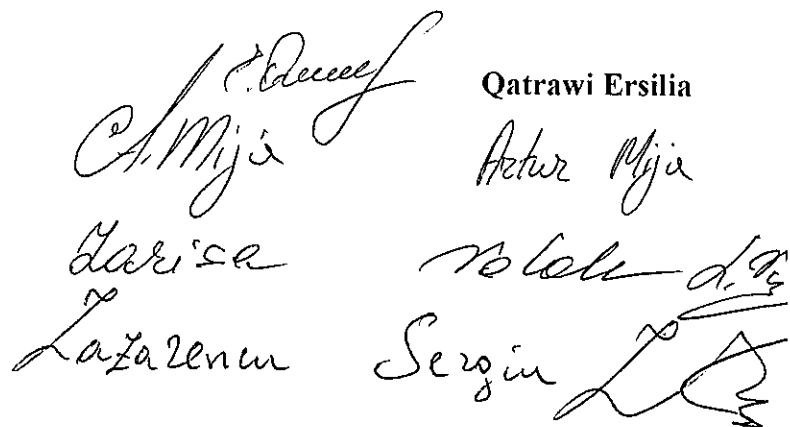 Qatrawi Ersilia
A. Mija Artur Mija
Larisa
Lazarencu Sergiu